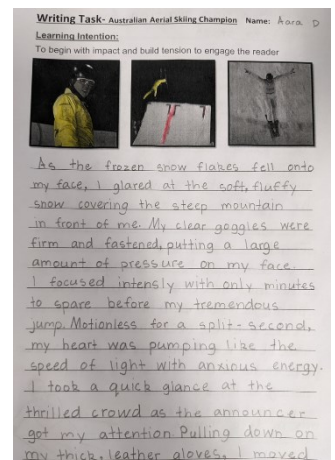 Writing Task- Australian Aerial Skiing Champion Name: Aara D
Learning Intention:
To begin with impact and build tension to engage the reader
As the frozen snow flakes fell onto
my face, I glared at the soft, fluffy
snow covering the steep mountain
in front of me. My clear goggles were
firm and fastened, putting a large
amount of pressure on my face.
I focused intensly with only minutes
to spare before my tremendous
jump. Motionless for a split-second,
my heart was pumping like the
speed of light with anxious energy.
I took a quick glance at the
thrilled crowd as the announcer
got my attention. Pulling down on
my thick, leather gloves, I moved